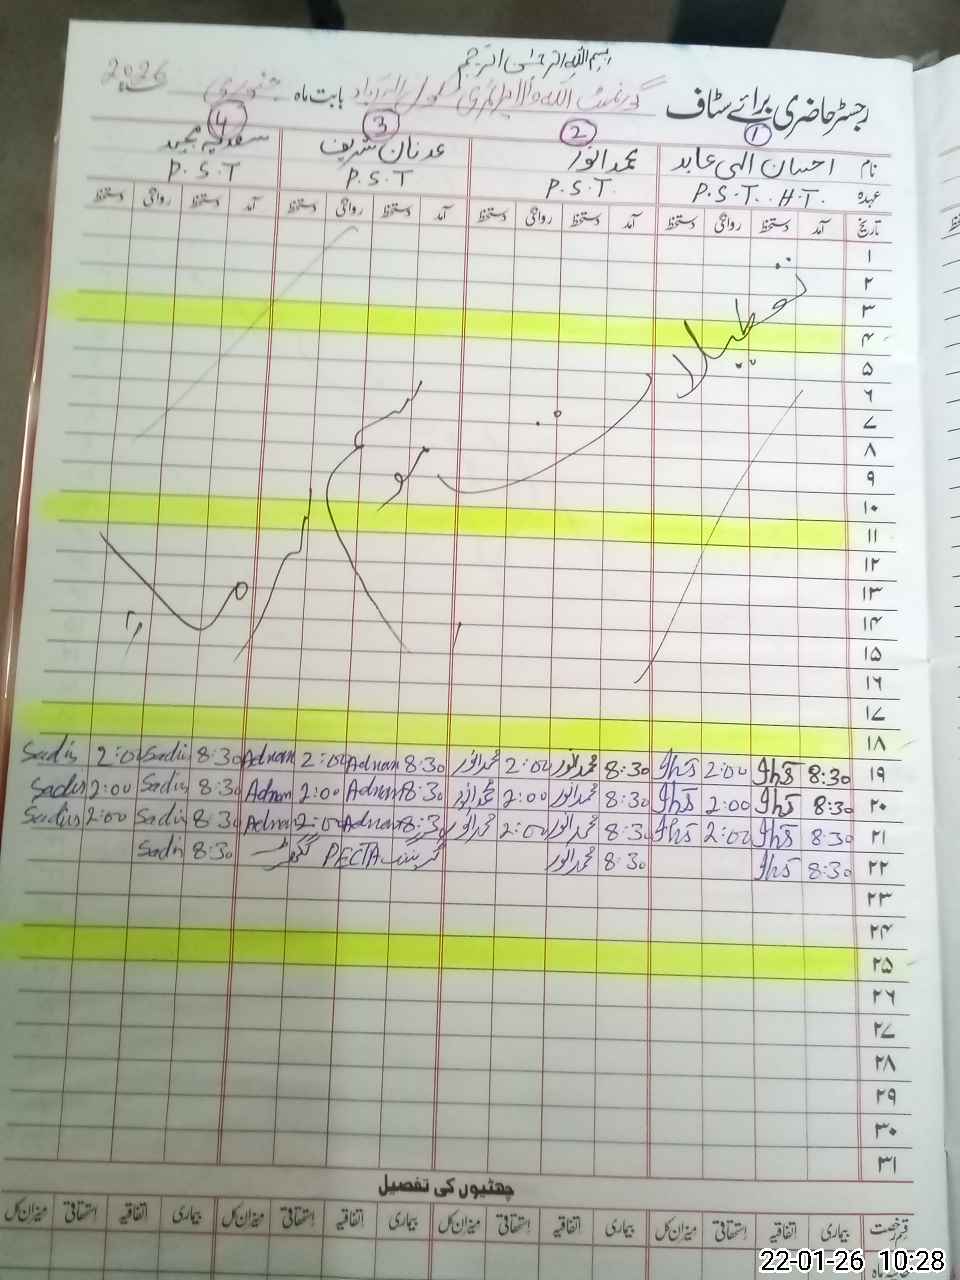 بسم اللہ الرحمٰن الرحیم
رجسٹر حاضری برائے سٹاف گورنمنٹ پرائمری سکول بابت ماہ جنوری 2026
1 2 3 4
نام احسان الہی عابد محمد انور عدنان شریف سعدیہ مجید
عہدہ P.S.T. H.T. P.S.T. P.S.T P.S.T
تاریخ آمد دستخط روانگی دستخط آمد دستخط روانگی دستخط آمد دستخط روانگی دستخط آمد دستخط روانگی دستخط
۱
۲
۳
۴
۵
۶
۷
۸
۹
۱۰
۱۱
۱۲
۱۳
۱۴
۱۵
۱۶
۱۷
۱۸
تعطیلات موسم سرما
۱۹ 8:30 IhS 2:00 IhS 8:30 محمد انور 2:00 محمد انور 8:30 Adnan 2:00 Adnan 8:30 Sadis 2:00 Sadis
۲۰ 8:30 IhS 2:00 IhS 8:30 محمد انور 2:00 محمد انور 8:30 Adnan 2:00 Adnan 8:30 Sadis 2:00 Sadis
۲۱ 8:30 IhS 2:00 IhS 8:30 محمد انور 2:00 محمد انور 8:30 Adnan 2:00 Adnan 8:30 Sadis 2:00 Sadis
۲۲ 8:30 IhS 8:30 محمد انور PECTA 8:30 Sadis
۲۳
۲۴
۲۵
۲۶
۲۷
۲۸
۲۹
۳۰
۳۱
چھٹیوں کی تفصیل
قسم رخصت بیماری اتفاقیہ استحقاقی میزان کل بیماری اتفاقیہ استحقاقی میزان کل بیماری اتفاقیہ استحقاقی میزان کل بیماری اتفاقیہ استحقاقی میزان کل
22-01-26 10:28